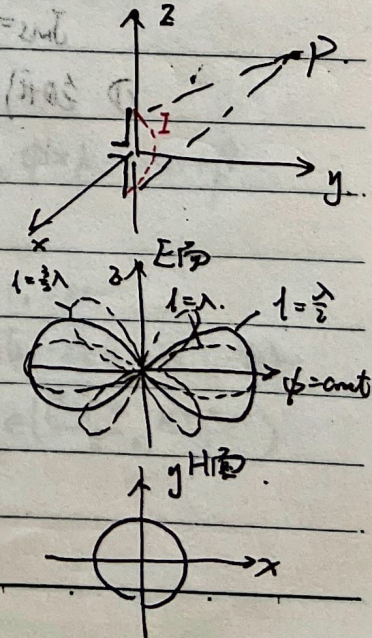 z
P.
I
y
x
E面
z
l=3/2λ
l=λ.
l=λ/2
φ=const
y H面.
x